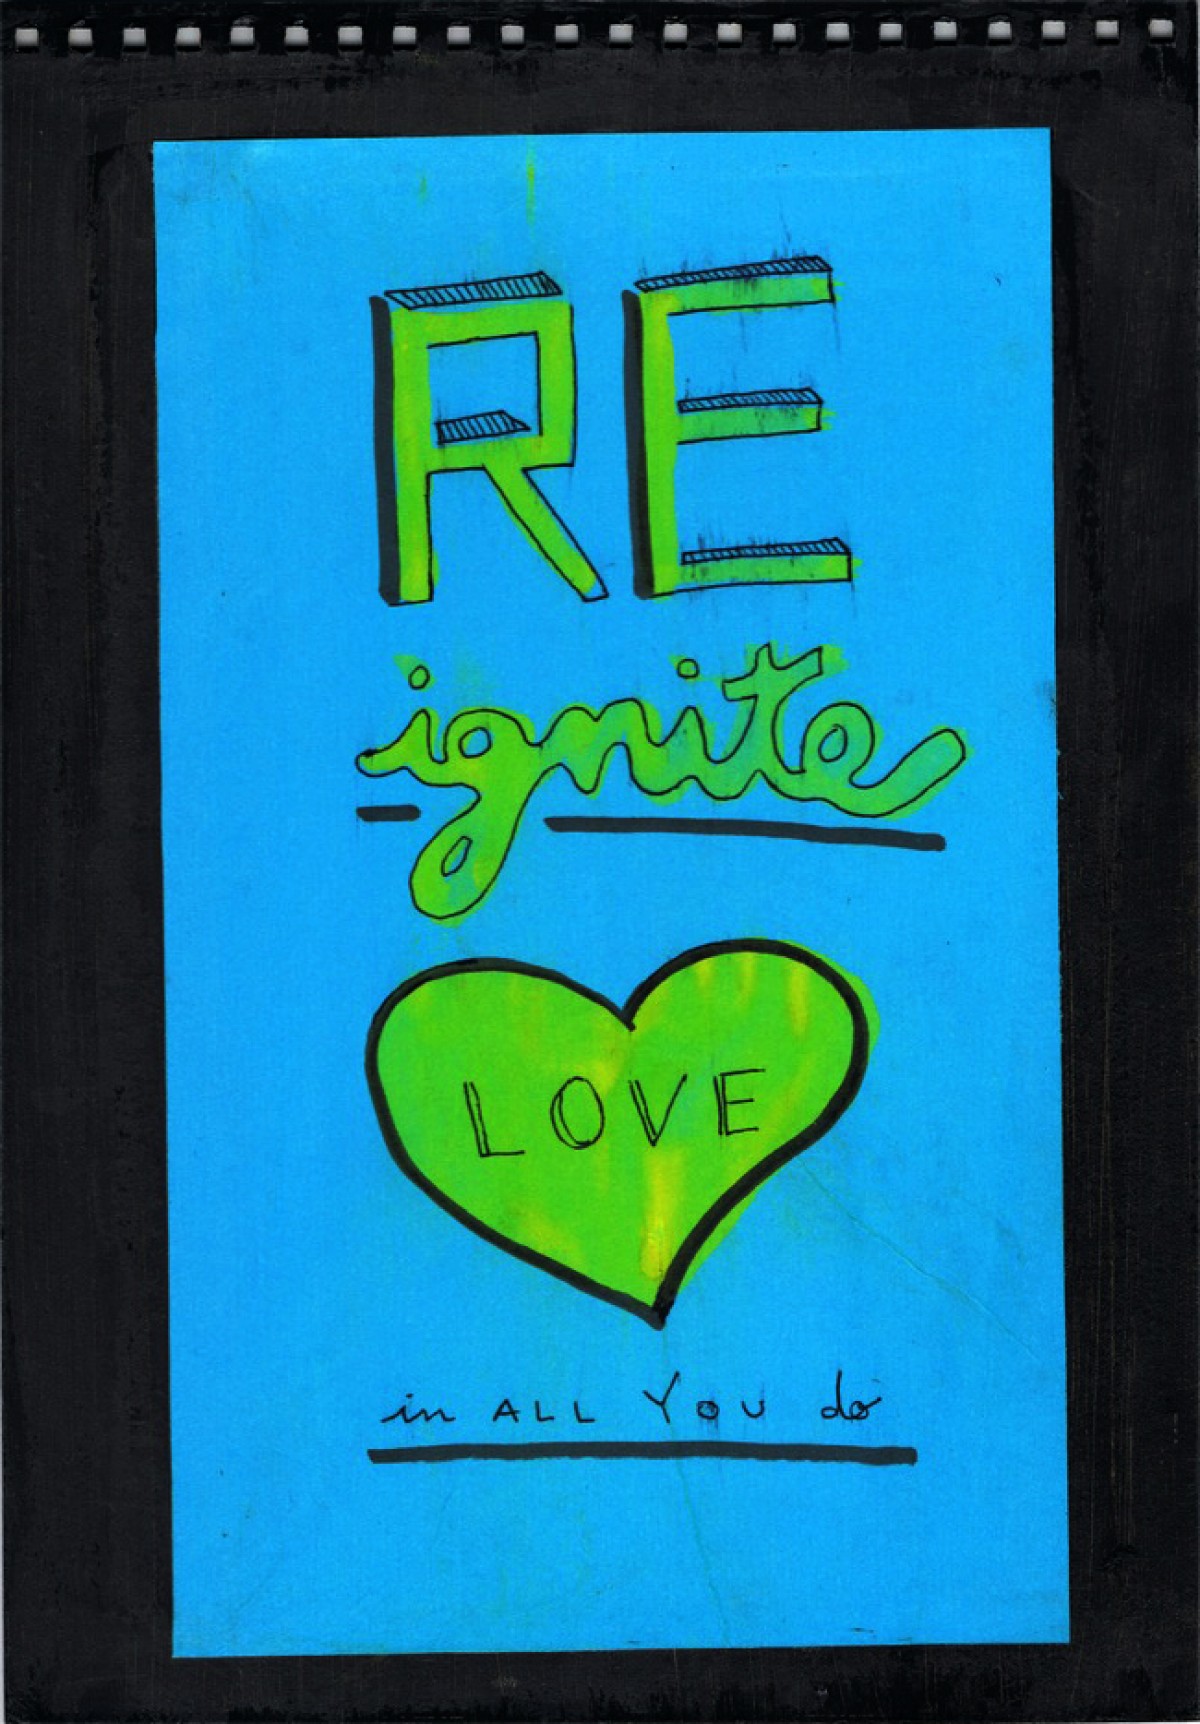 RE
ignite
LOVE
in ALL YOU do